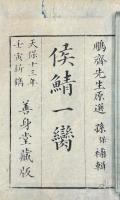 鵬齋先生原選 孫保 補輯
侯鯖一臠
天保十三年
壬寅新鐫
善身堂藏版